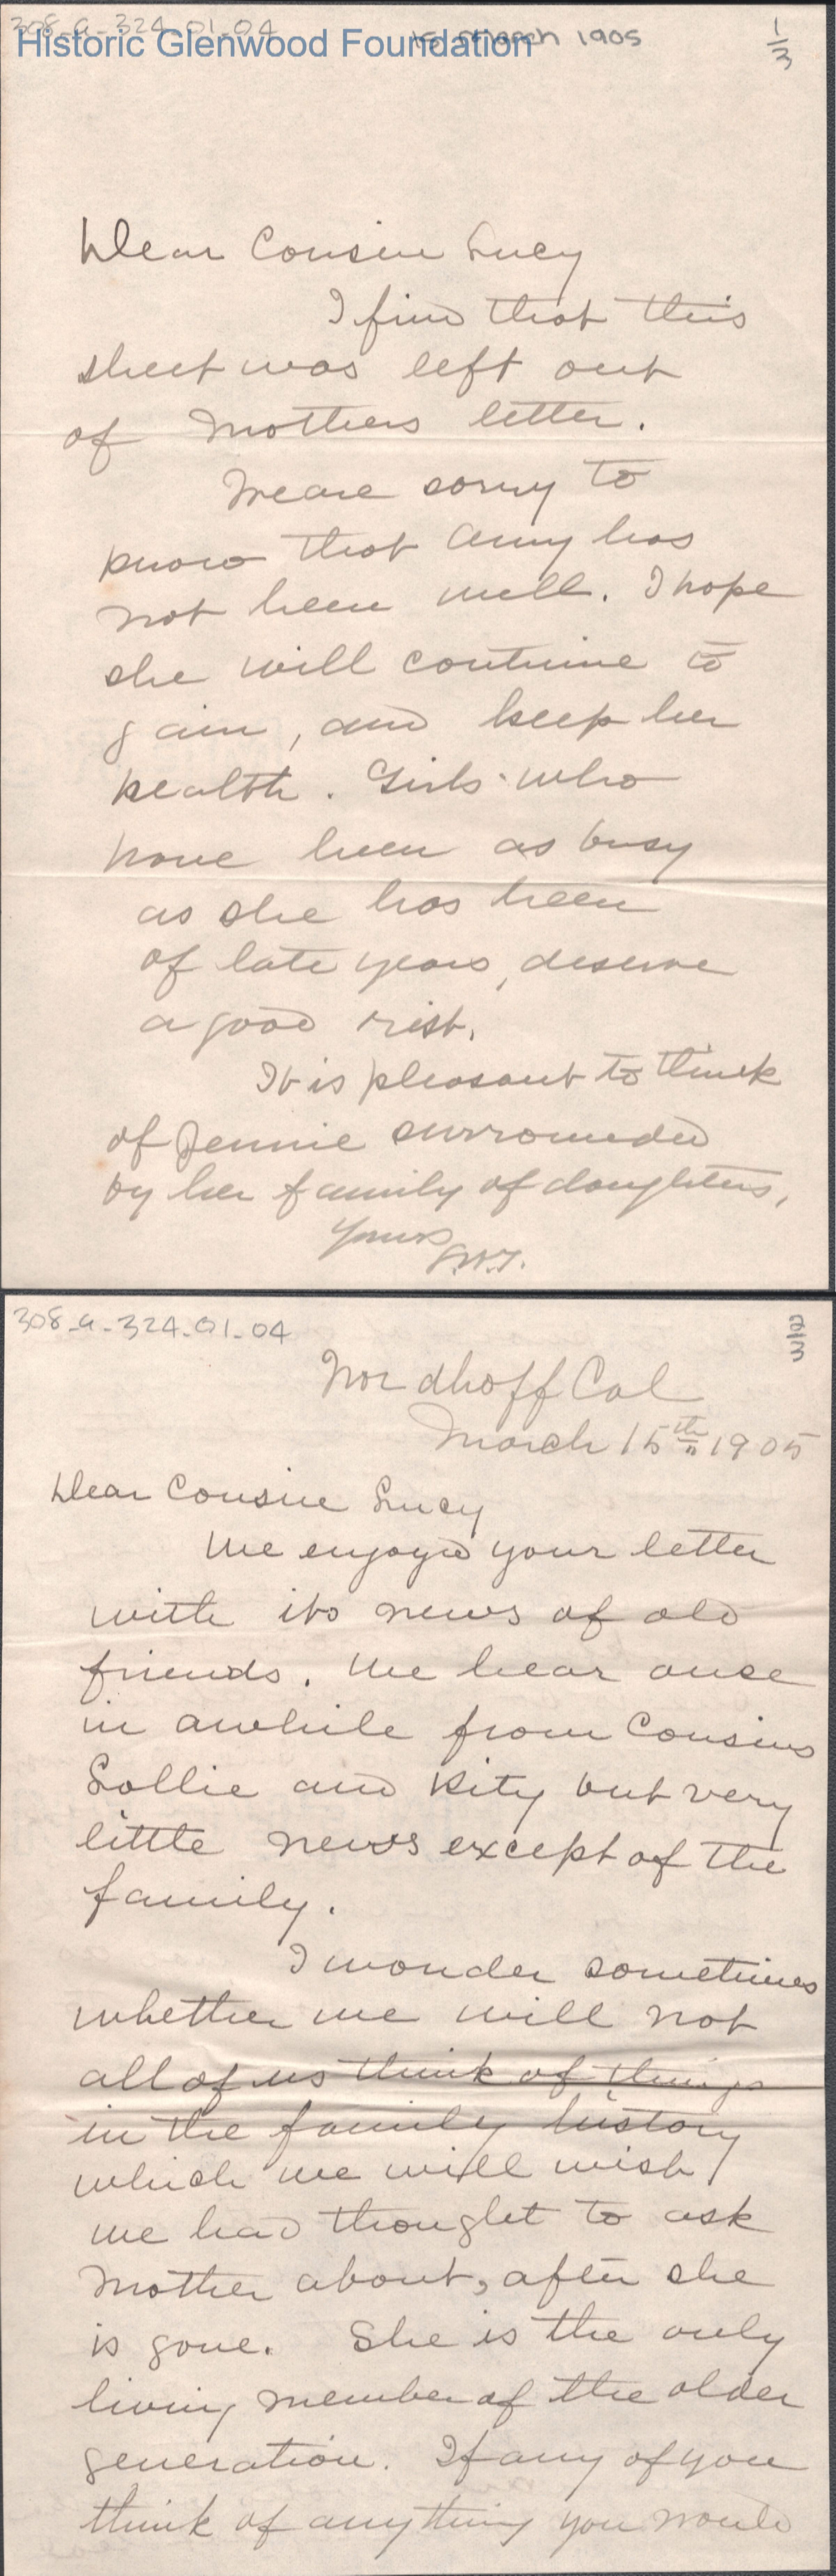 308-a-324-01-04
Historic Glenwood Foundation
15 March 1905
1/3
Dear Cousin Lucy
I find that this
sheet was left out
of Mothers letter.
We are sorry to
know that Amy has
not been well. I hope
she will continue to
gain, and keep her
health. Girls who
have been as busy
as she has been
of late years, deserve
a good rest.
It is pleasant to think
of Jennie surrounded
by her family of daughters,
Yours
308-a-324-01-04
2/3
Nordhoff Cal
March 15th 1905
Dear Cousin Lucy
We enjoyed your letter
with its news of old
friends. We hear once
in awhile from Cousins
Sallie and Kity but very
little news except of the
family.
I wonder sometimes
whether we will not
all of us think of things
in the family history
which we will wish
we had thought to ask
Mother about, after she
is gone. She is the only
living member of the older
generation. If any of you
think of anything you would